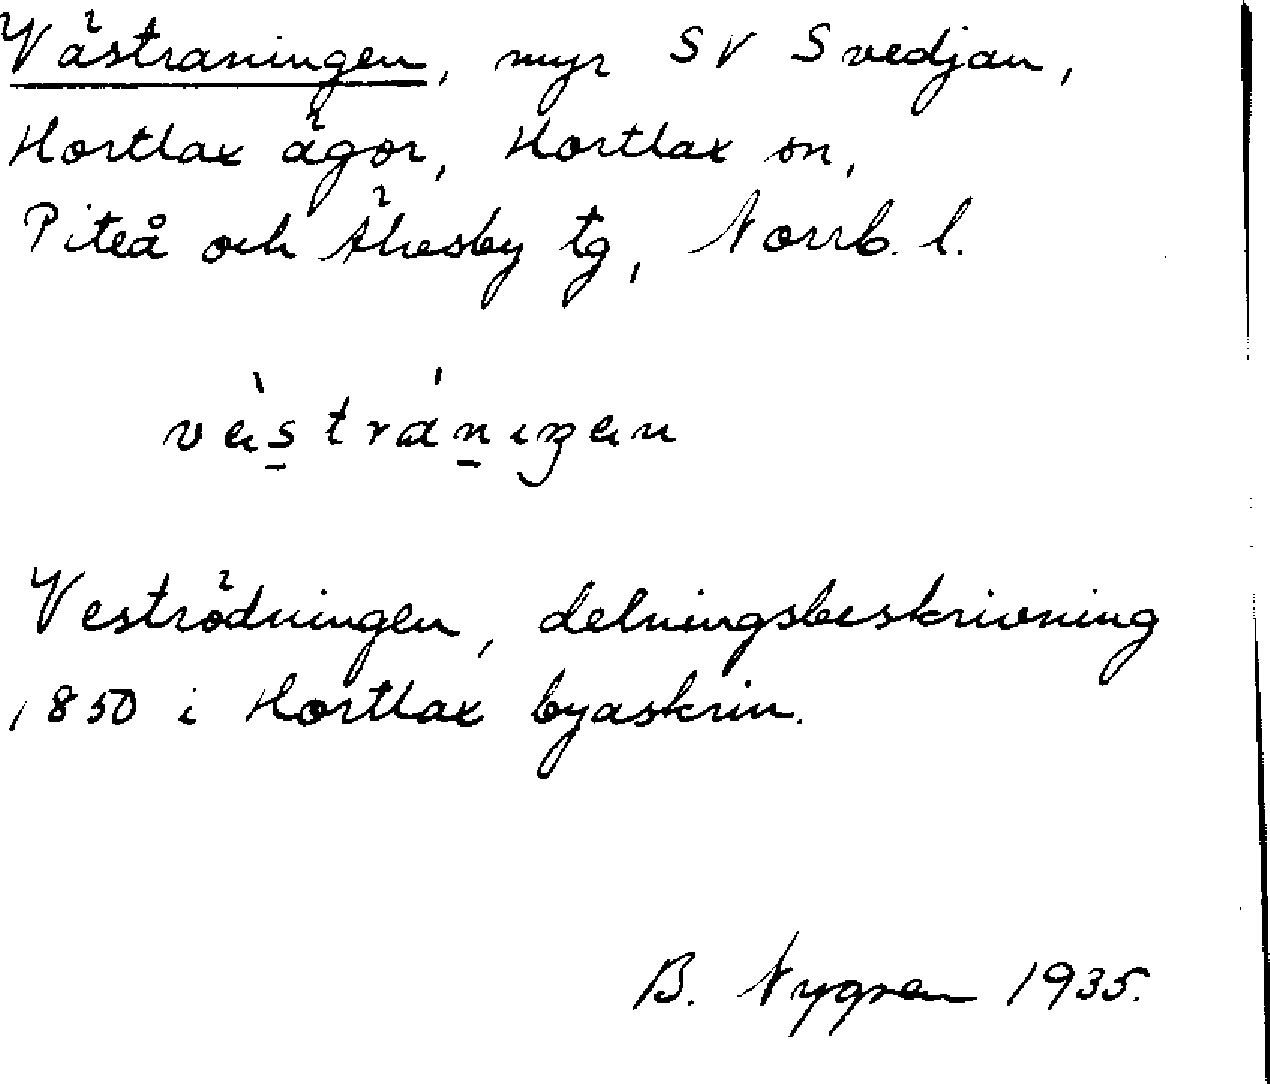 Västraningen, myr SV Svedjan,
Hortlax ägor, Hortlax sn,
Piteå och Älvsby tg, Norrb. l.
Veströdningen, delningsbeskrivning
1850 i Hortlax byaskrin.
B. Nygren 1935.